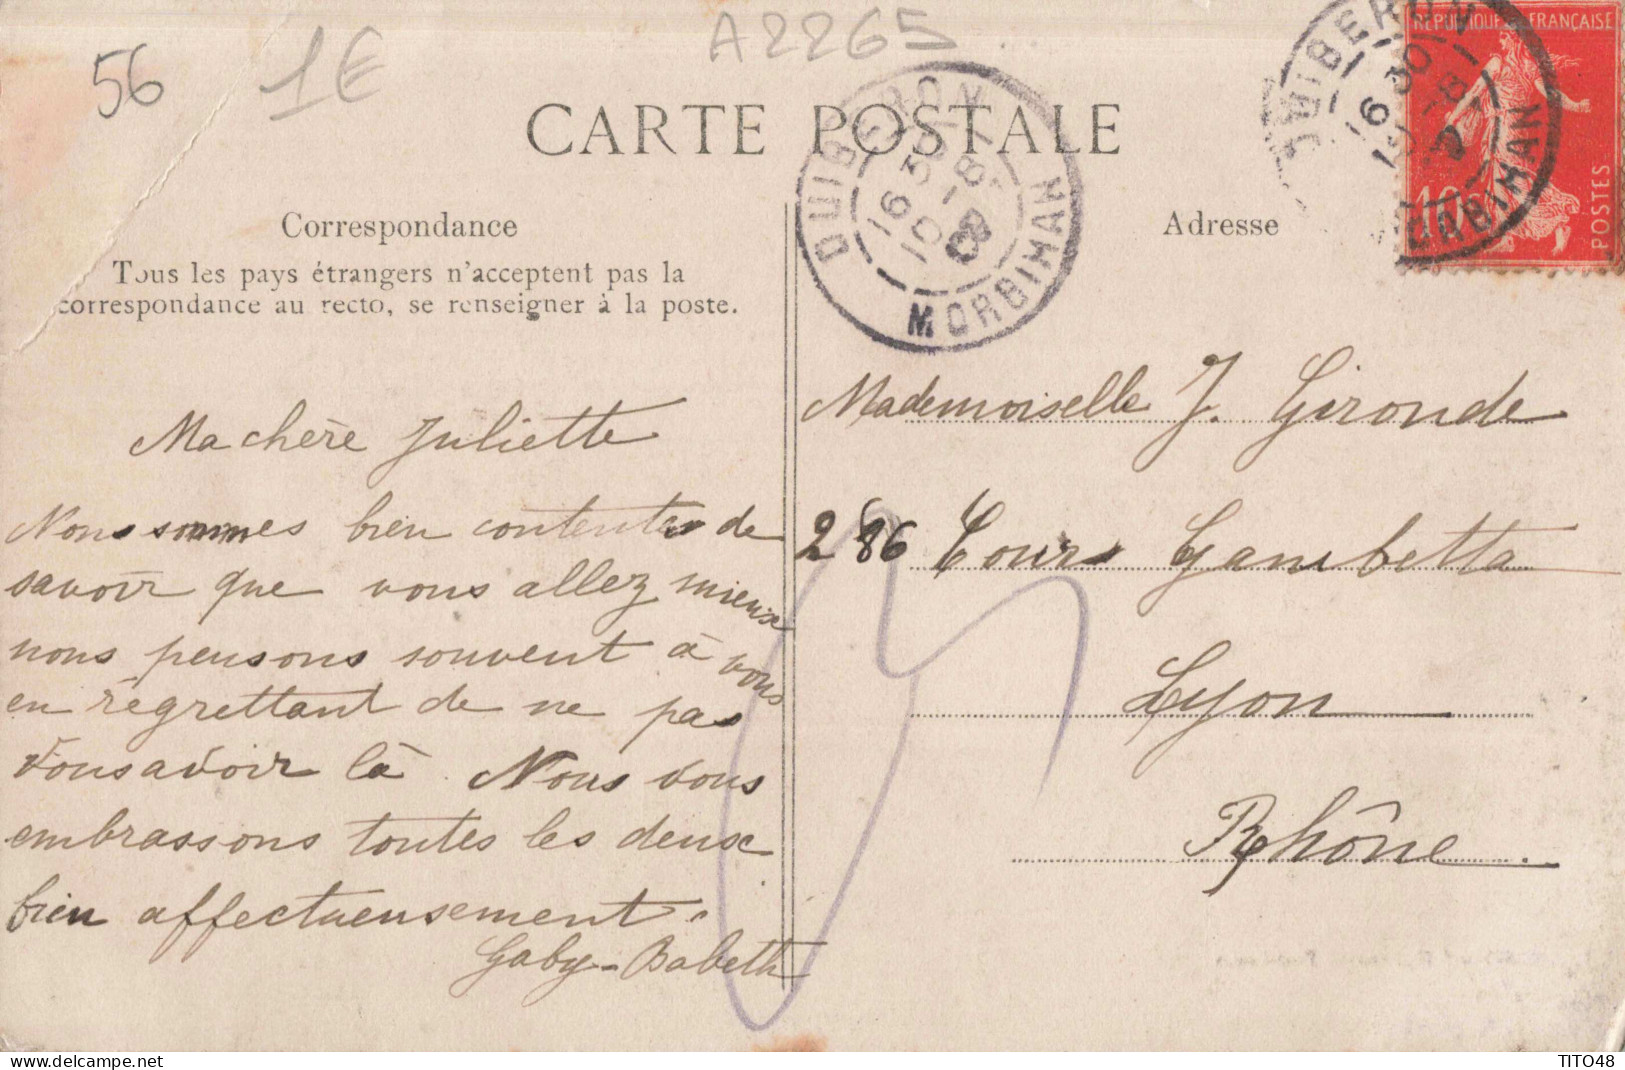 56
1€
A2265
CARTE POSTALE
QUIBERON
16 30
30 -8
10 08
MORBIHAN
QUIBERON
MORBIHAN
RÉPUBLIQUE FRANÇAISE
10c
POSTES
Correspondance
Tous les pays étrangers n'acceptent pas la
correspondance au recto, se renseigner à la poste.
Adresse
Ma chère Juliette
Nous sommes bien contentes de
savoir que vous allez mieux
nous pensons souvent à vous
en regrettant de ne pas
vous avoir là. Nous vous
embrassons toutes les deux
bien affectueusement.
Gaby-Babeth
Mademoiselle J. Gironde
286 Cours Gambetta
Lyon
Rhône.
TITO48